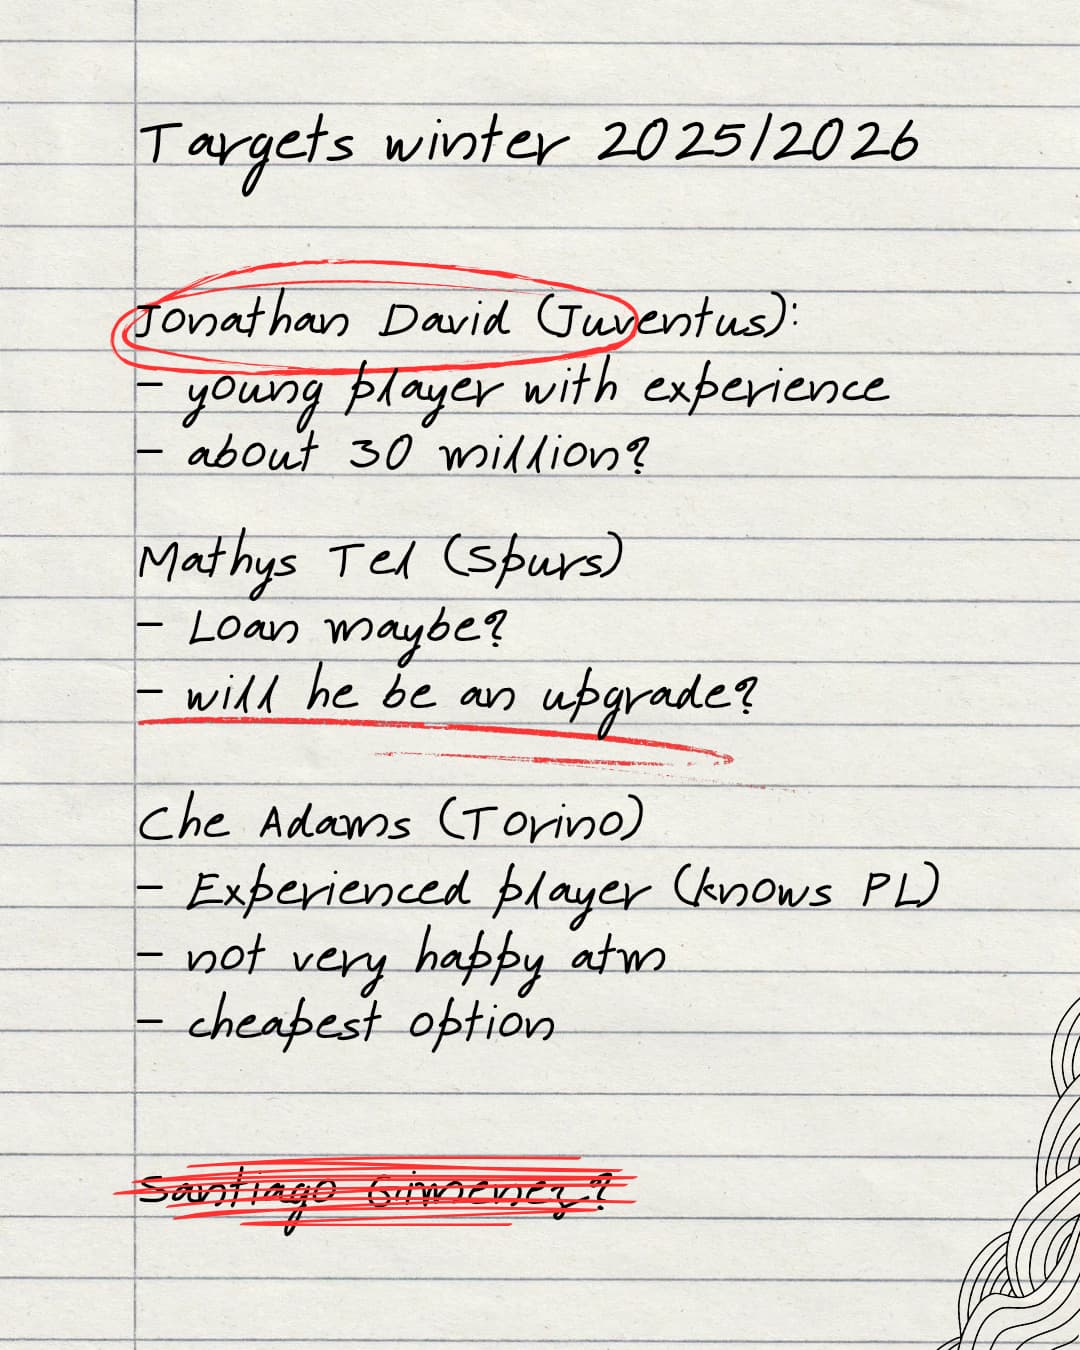 Targets winter 2025/2026
Jonathan David (Juventus):
- young player with experience
- about 30 million?
Mathys Tel (Spurs)
- Loan maybe?
- will he be an upgrade?
Che Adams (Torino)
- Experienced player (knows PL)
- not very happy atm
- cheapest option
Santiago Gimenez?